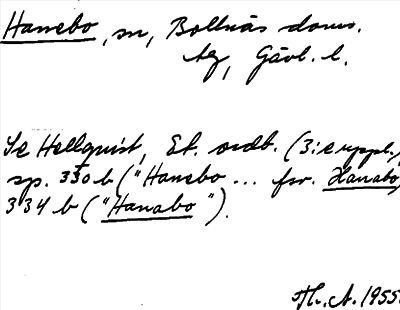 Hanebo, sn, Bollnäs doms.
tg, Gävl. l.
Se Hellquist, Et. ordb. (3:e uppl.,
sp. 330 b ("Hanebo ... fsv. Hanabo,
334 b ("Hanabo").
Th. A. 1955.